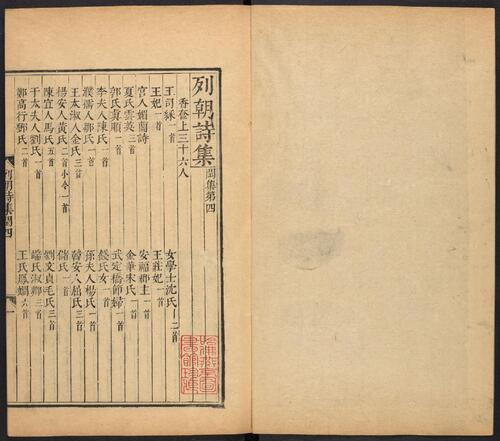 列朝詩集 閏集第四
香奩上三十六人
王司綵一首
女學士沈氏十二首
王妃一首
王莊妃一首
宮人媚蘭詩
安福郡主一首
夏氏雲英三首
金華宋氏一首
郭氏眞順一首
武定橋師婦一首
李夫人陳氏一首
錢氏女一首
濮孺人鄒氏一首
孫夫人楊氏一首
王太淑人金氏三首
楊安人黃氏二首小令一首
儲氏一首
陳宜人馬氏五首
劉文貞毛氏三首
于太夫人劉氏一首
端氏淑卿三首
鄭高行鄧氏二首
王氏鳳嫻六首
列朝詩集閏四
一